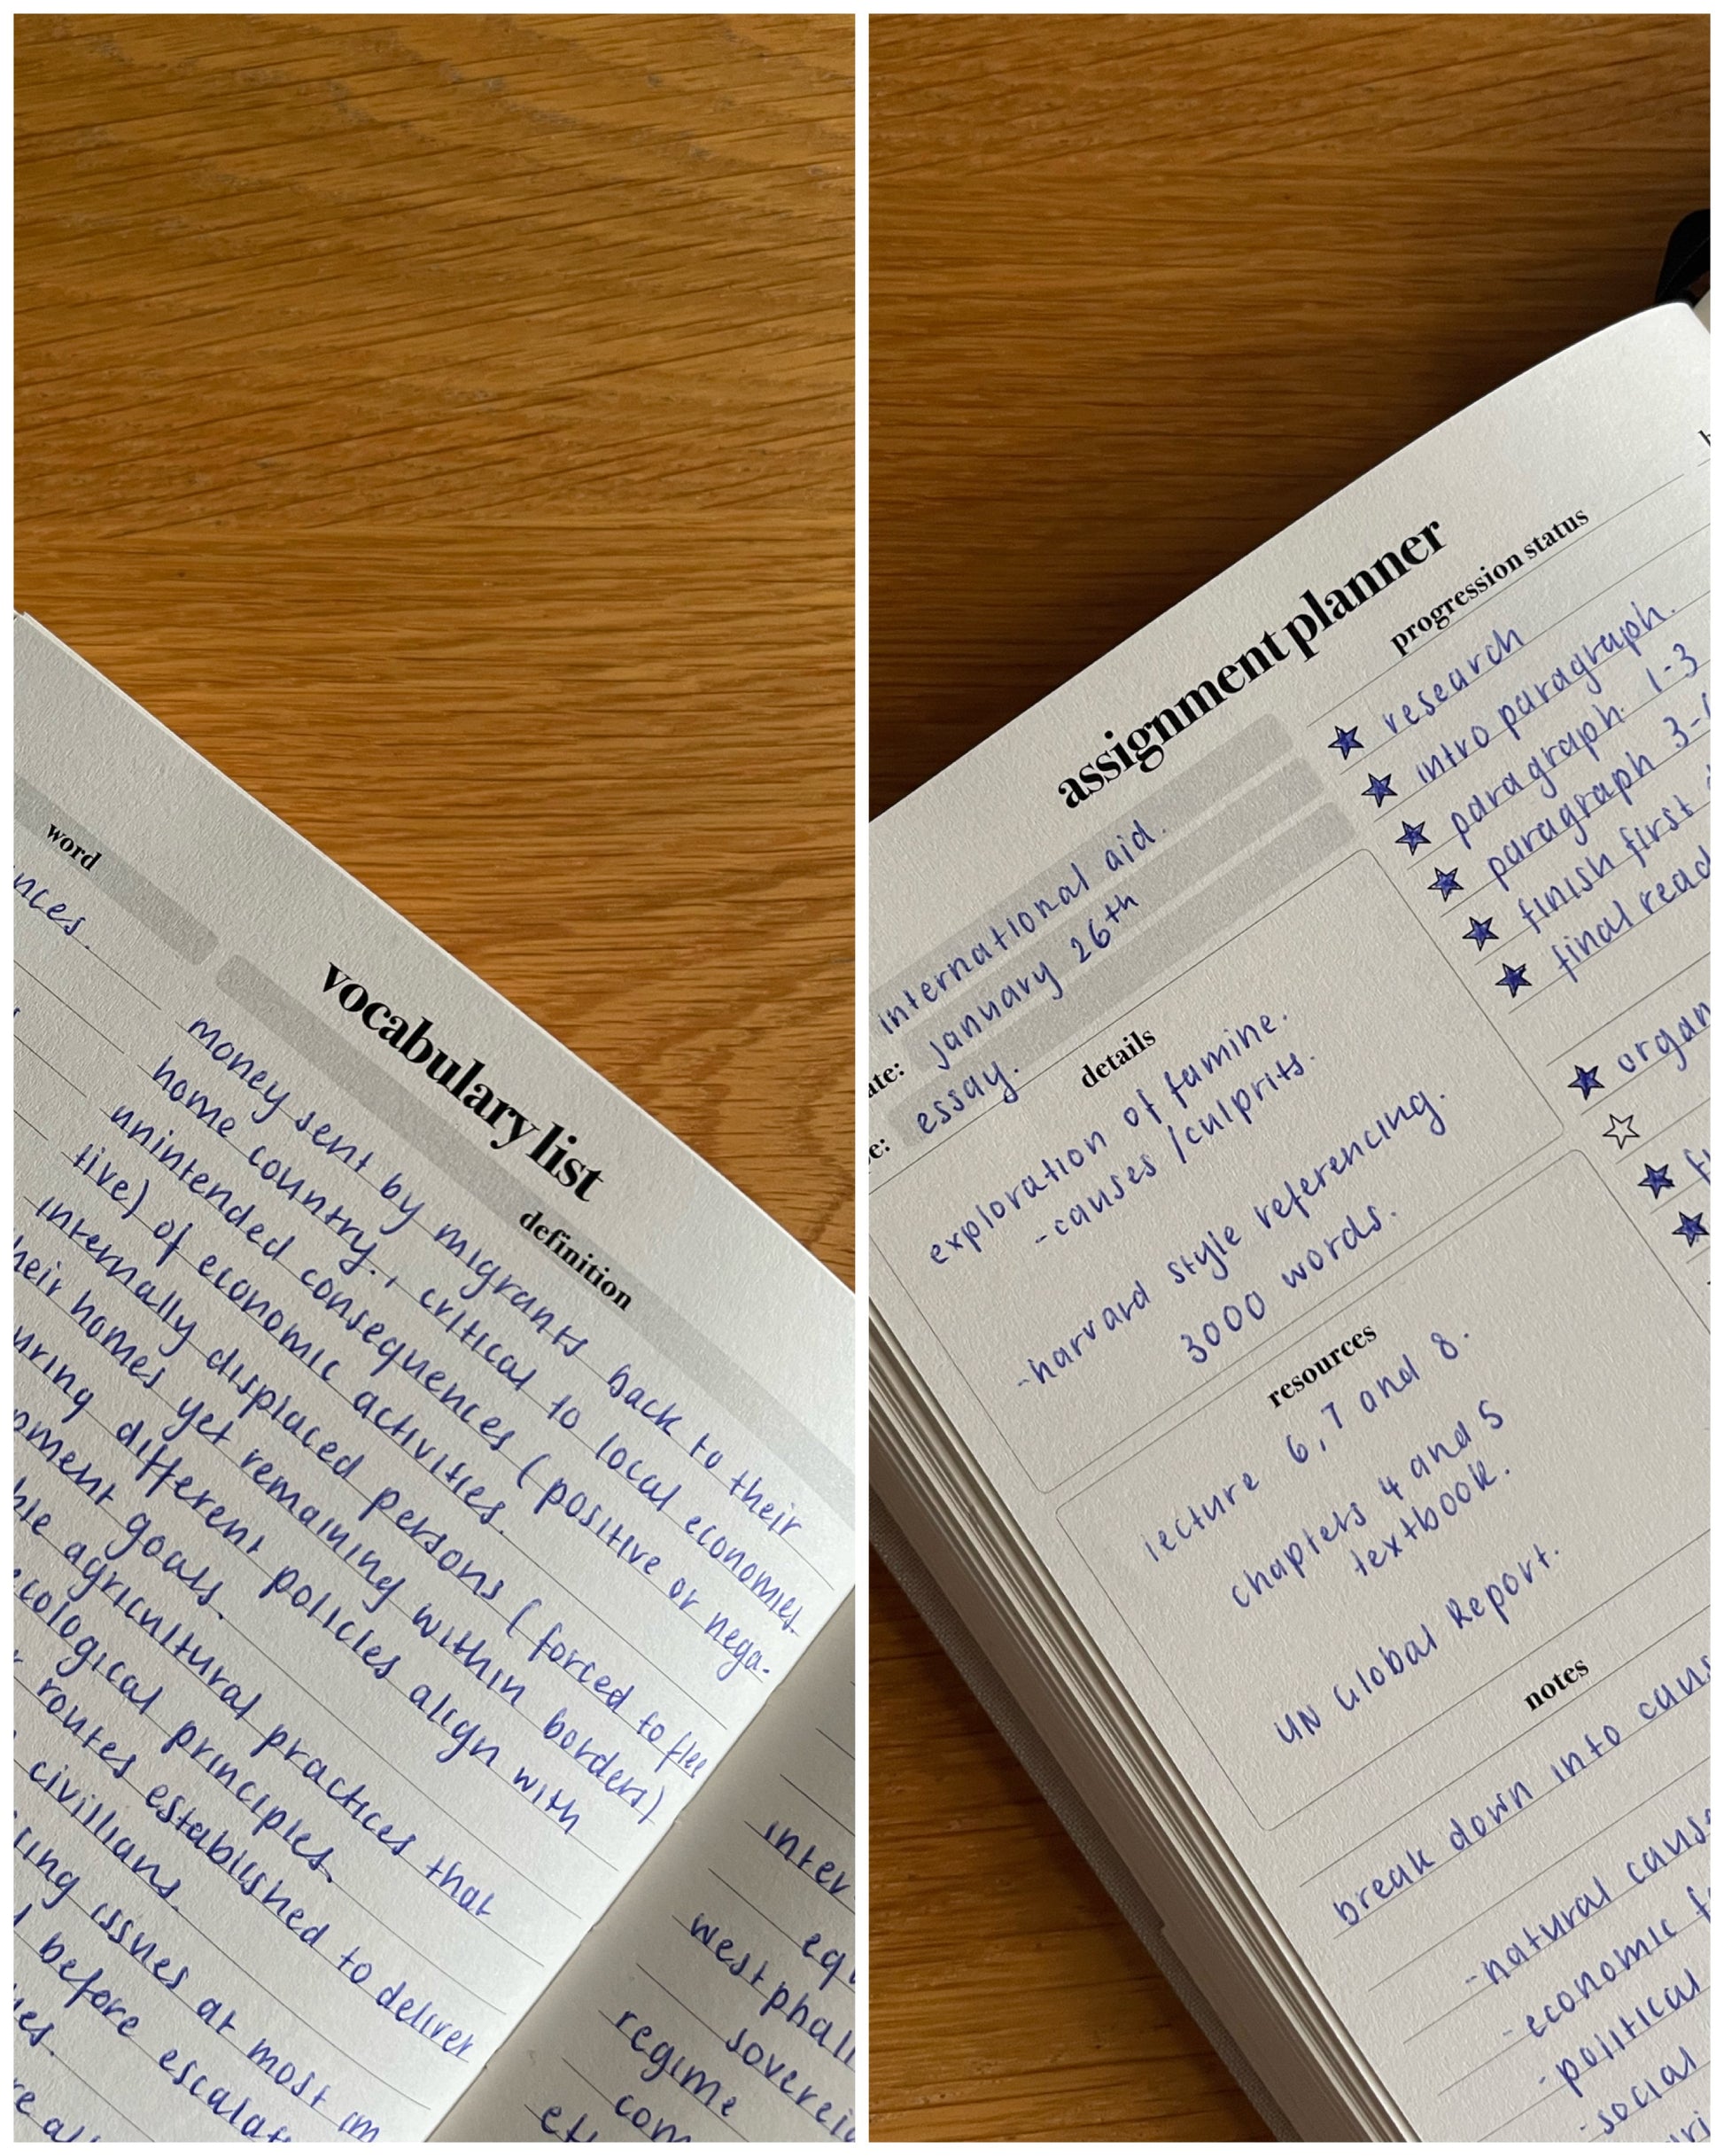 vocabulary list
word
definition
nces.
money sent by migrants back to their
home country., critical to local economies.
unintended consequences (positive or nega-
tive) of economic activities.
internally displaced persons (forced to flee
heir homes yet remaining within borders)
uring different policies align with
pment goals.
ble agricultural practices that
ecological principles.
routes established to deliver
civillians.
ing issues at most im
before escalat
es.
re al
inter
eq
westphali
soverei
regime
com
eth
assignment planner
international aid.
ate: january 26th
e: essay.
details
exploration of famine.
-causes / culprits.
-harvard style referencing.
3000 words.
resources
lecture 6, 7 and 8.
chapters 4 and 5
textbook.
UN Global Report.
progression status
research
intro paragraph.
paragraph. 1-3
paragraph 3-
finish first
final read
organ
notes
break down into caus
-natural cause
-economic f
-political
-social